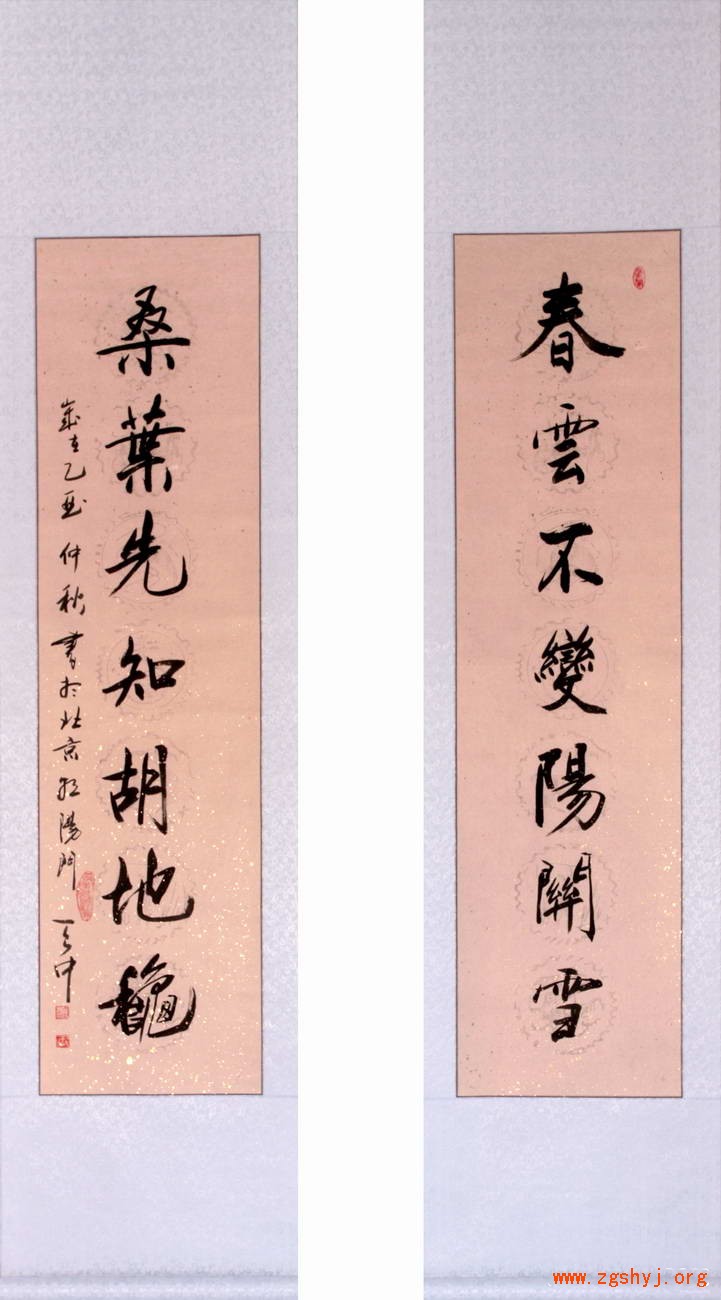 春雲不變陽關雪
桑葉先知胡地龝
歲在乙酉仲秋書於北京朝陽門
www.zgshyj.org